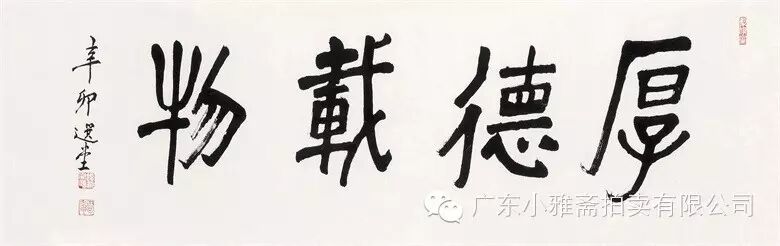 厚德載物
辛卯 選堂
广东小雅斋拍卖有限公司